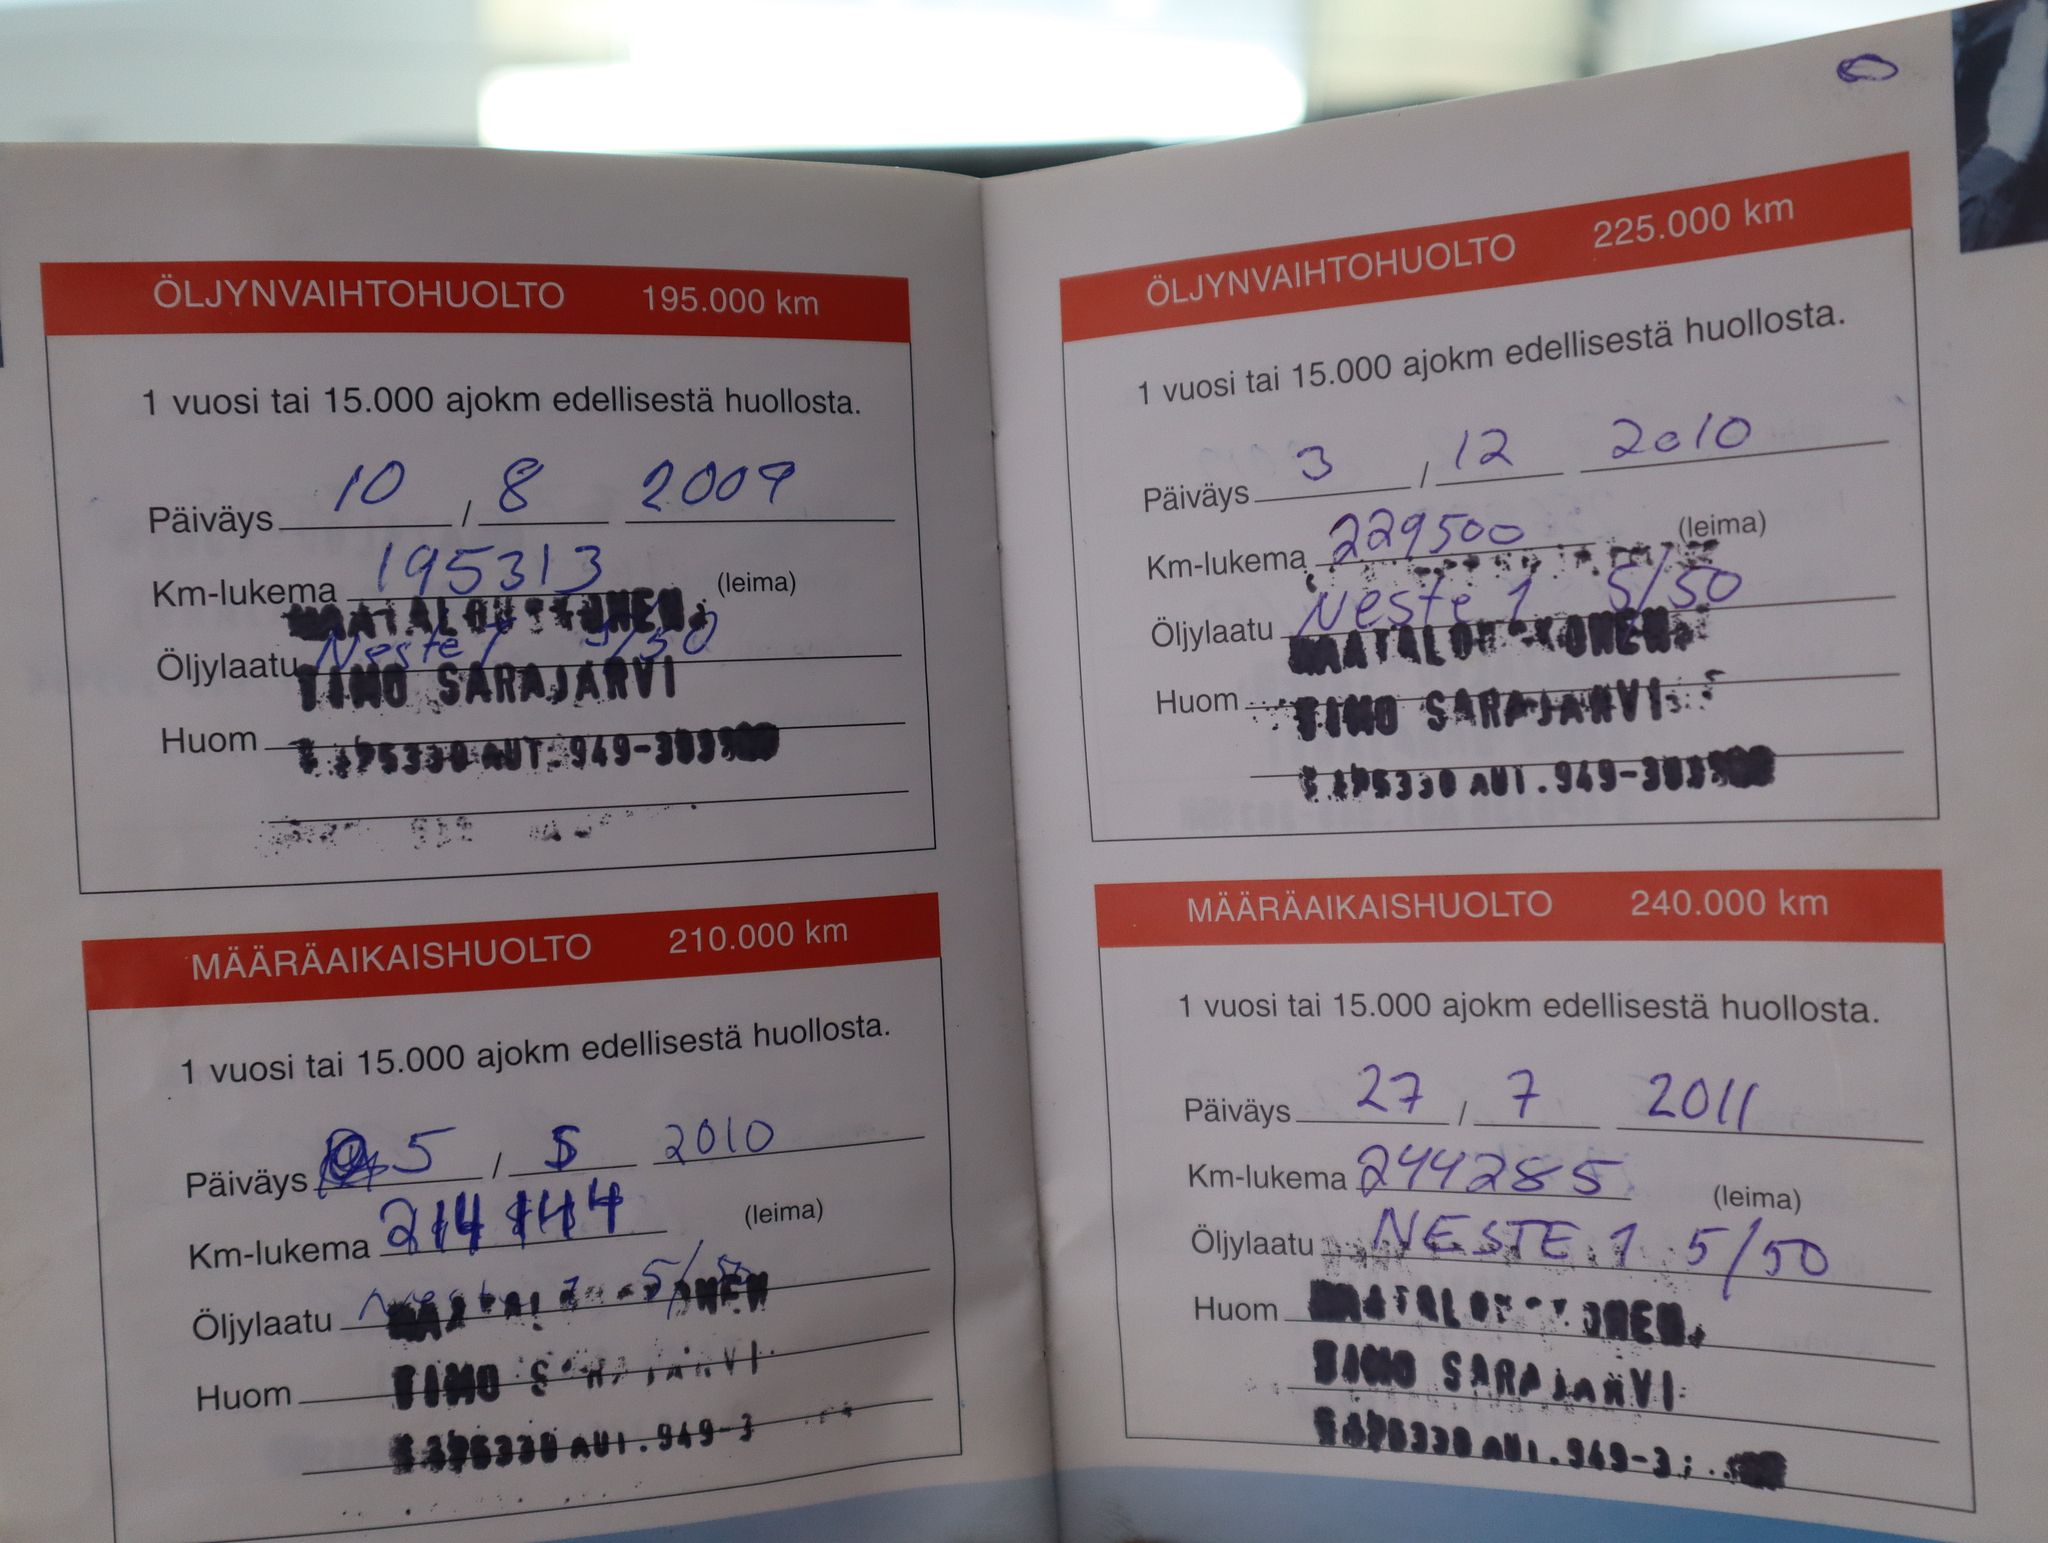 ÖLJYNVAIHTOHUOLTO 195.000 km
1 vuosi tai 15.000 ajokm edellisestä huollosta.
Päiväys 10 / 8 2009
Km-lukema 195313 (leima)
Öljylaatu Neste 1 5/50
TIMO SARAJÄRVI
Huom
AUT. 949-303
MÄÄRÄAIKAISHUOLTO 210.000 km
1 vuosi tai 15.000 ajokm edellisestä huollosta.
Päiväys 5 / 5 2010
Km-lukema 214144 (leima)
Öljylaatu Neste 1 5/50
Huom TIMO SARAJÄRVI
AUT. 949-3
ÖLJYNVAIHTOHUOLTO 225.000 km
1 vuosi tai 15.000 ajokm edellisestä huollosta.
Päiväys 3 / 12 2010
Km-lukema 229500 (leima)
Öljylaatu Neste 1 5/50
Huom TIMO SARAJÄRVI
AUT. 949-303
MÄÄRÄAIKAISHUOLTO 240.000 km
1 vuosi tai 15.000 ajokm edellisestä huollosta.
Päiväys 27 / 7 2011
Km-lukema 244285 (leima)
Öljylaatu NESTE 1 5/50
Huom
TIMO SARAJÄRVI
AUT. 949-3